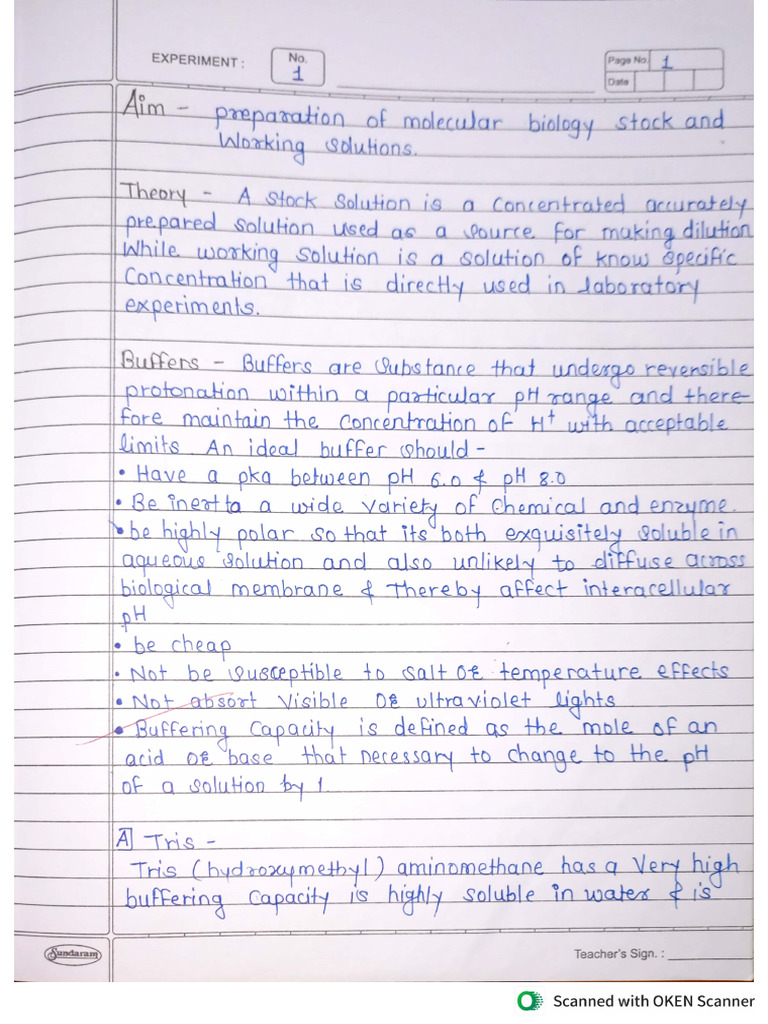 EXPERIMENT :
No.
1
Page No.
1
Date
Aim - preparation of molecular biology stock and
Working solutions.
Theory - A stock solution is a concentrated accurately
prepared solution used as a source for making dilution
While working solution is a solution of know specific
Concentration that is directly used in laboratory
experiments.
Buffers - Buffers are substance that undergo reversible
protonation within a particular pH range and there-
fore maintain the concentration of H+ with acceptable
limits An ideal buffer should -
• Have a pka between pH 6.0 & pH 8.0
• Be inert to a wide variety of chemical and enzyme.
• be highly polar so that its both exquisitely soluble in
aqueous solution and also unlikely to diffuse across
biological membrane & thereby affect interacellular
pH
• be cheap
• Not be susceptible to salt or temperature effects
• Not absort visible or ultraviolet lights
• Buffering Capacity is defined as the mole of an
acid or base that necessary to change to the pH
of a solution by 1
A Tris -
Tris (hydroxymethyl) aminomethane has a very high
buffering capacity is highly soluble in water & is
Sundaram
Teacher's Sign. :
Scanned with OKEN Scanner